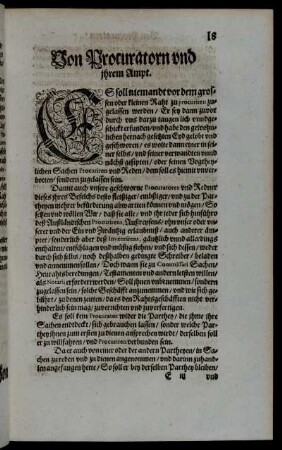 18
Von Procuratorn vnd
jhrem Ampt.
ES soll niemandt vor dem gros-
sen oder kleinen Raht zu procuriern zu-
gelassen werden / Er sey dann zuvor
durch vns darzu tauglich vnd ge-
schickt erfunden / vnd habe den gewohn-
lichen hernach gesetzten Eyd gelobt vnd
geschworen / es wolte dann einer in sei-
ner selbs / vnd seiner verwandten vnd
nächst gesipten / oder seinen Vogthey-
lichen Sachen Procuriern vnd Reden / dem soll es hiemit vnver-
botten / sondern zugelassen sein.
Damit auch vnsere geschworne Procuratores vnd Redner
dieses jhres Befelchs desto fleissiger / embsiger / vnd zu der Par-
theyen mehrer befürderung abwarten können vnd mögen / So
setzen vnd wöllen Wir / daß sie alle / vnd jhr jeder sich hinfürohin
deß Außländischen Procurierens, Ausreisens / ohn vnser oder vn-
serer vnd der Ein vnd Zwäntzig erlaubnuß / auch anderer äm-
pter / sonderlich aber deß gäntzlich vnd allerdings
enthalten / entschlagen vnd müssig stehen / vnd sich dessen / weder
durch sich selbs / noch deßhalben gedingte Schreiber / beladen
vnd annemmen sollen / Doch wann sie zu Contract Sachen /
Heurahtsberedungen / Testamenten vnd andern letsten willen /
als Notarij erfordert werden / Soll jhnen vnbenommen / sondern
zugelassen sein / solche Geschäfft anzunemmen / vnd wie sich ge-
bührt / zu denen zeitten / da es den Rahtsgeschäfften nicht ver-
hinderlich sein mag / zuverrichten vnd zuverfertigen.
Es soll kein Procurator wider die Parthey / die jhme jhre
Sachen entdeckt / sich gebrauchen lassen / sonder welche Par-
they jhnen zum ersten zu dienen ansprechen würde / derselben soll
er zu willfahren / vnd Procuriern verbunden sein.
Da er auch von einer oder der andern Partheyen / in Sa-
chen zu reden vnd zu dienen angenommen / vnd darinn zuhand-
len angefangen hette / So soll er bey derselben Parthey bleiben /
E iij vnd